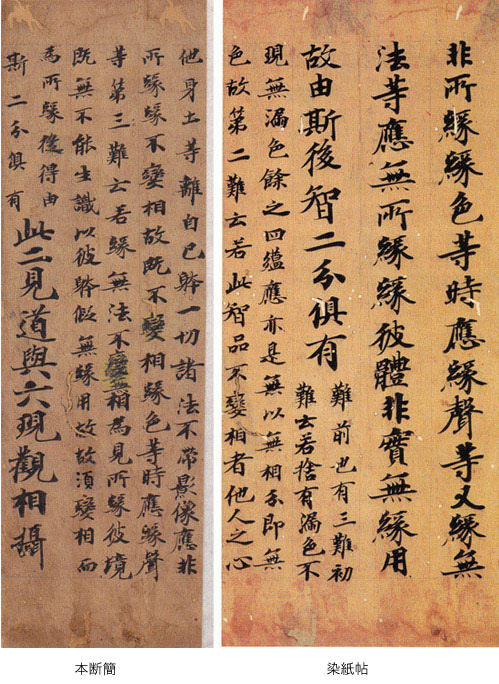 非所緣緣色等時應緣聲等又緣無
法等應無所緣緣彼體非實無緣用
故由斯後智二分俱有
難前也有三難初
難云若捨有漏色不
現無漏色餘之四蘊應亦是無以無相分即無
色故第二難云若此智品不變相者他人之心
他身土等離自己躰一切諸法不帶影像應非
所緣緣不變相故既不變相緣色等時應緣聲
等第三難云若緣無法不變相為見所緣彼境
既無不能生識以彼躰假無緣用故故須變相而
為所緣後得由
斯二分俱有
此二見道與六現觀相攝
本断簡
染紙帖